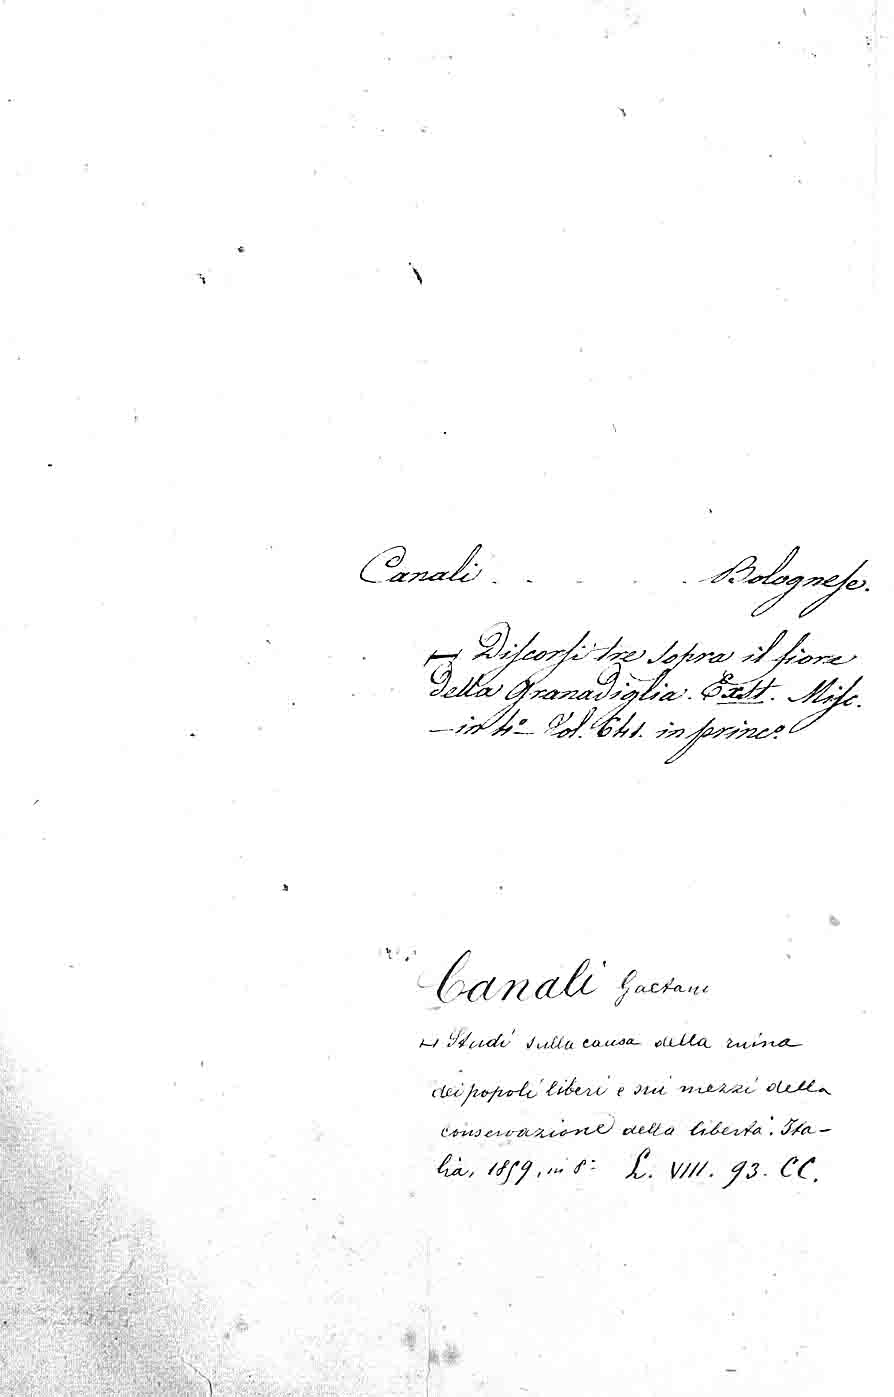 Canali . . . . . Bolognese.
— Discorsi tre sopra il fiore
della Granadiglia. Exstt. Misc.
— in 4° — Vol. 641. in princ°.
Canali Gaetano
— Studi sulla causa della ruina
dei popoli liberi e sui mezzi della
conservazione della libertà. Ita-
lia, 1859, in 8° L. VIII. 93. CC.